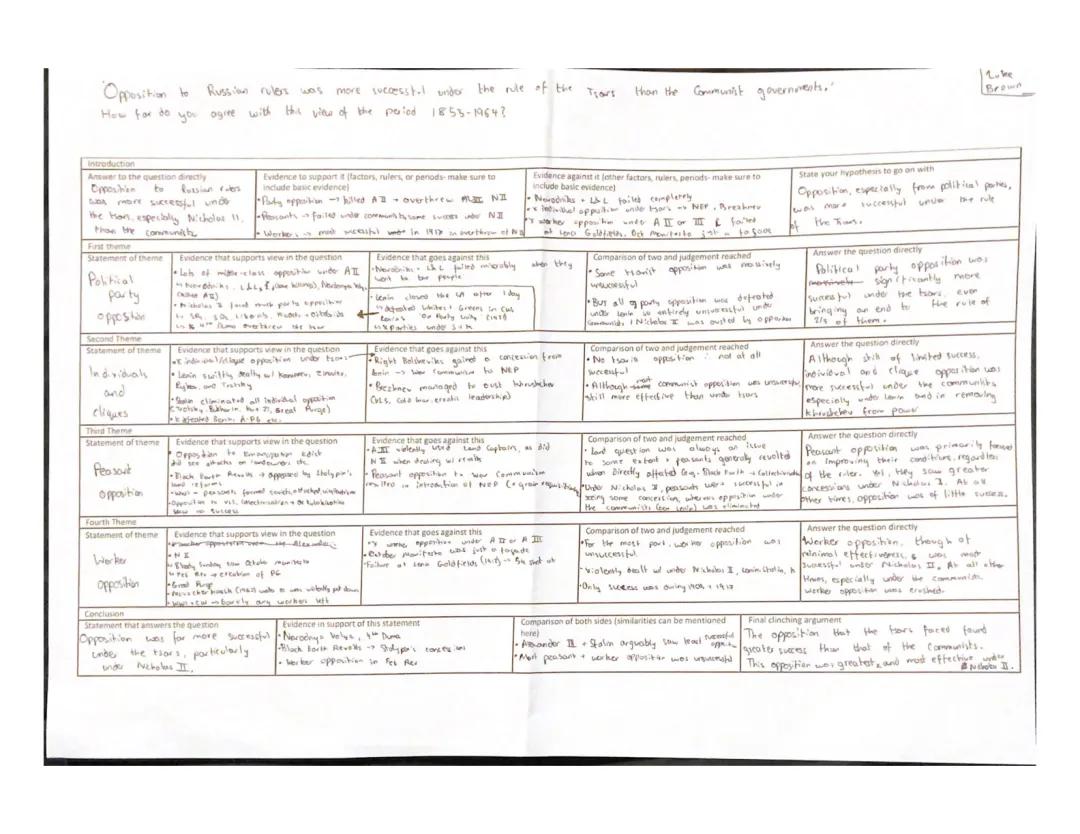 'Opposition to Russian rulers was more successful under the rule of the Tsars than the Communist governments.'
How far do you agree with this view of the period 1853-1964?
Luke
Brown
Introduction
Answer to the question directly
Opposition to Russian rulers
was more successful under
the tsars, especially Nicholas II,
than the communists
Evidence to support it (factors, rulers, or periods- make sure to
include basic evidence)
• Party opposition → killed AII + overthrew NII
• Peasants → failed under communists, some success under NII
• Workers → most successful in 1917 in overthrow of NII
Evidence against it (other factors, rulers, periods- make sure to
include basic evidence)
• Narodniks + L&L failed completely
• x individual opposition under tsars → NEP, Brezhnev
• x worker opposition under AII or III & failed
at Lena Goldfields, Oct Manifesto just a façade
State your hypothesis to go on with
Opposition, especially from political parties,
was more successful under the rule
of the Tsars.
First theme
Statement of theme
Political
party
opposition
Evidence that supports view in the question
• Lots of middle-class opposition under AII
↳ Narodniks, L&L, Narodnaya Volya
(killed AII)
• Nicholas II faced much party opposition
↳ SRs, SDs, Liberals,
↳ 4th Duma overthrew the tsar
Evidence that goes against this
• Narodniks + L&L failed miserably when they
went to the people
• Lenin closed the CA after 1 day
• Defeated Whites + Greens in CW
• Lenin's 'On Party Unity' (1921)
↳ x parties under S + K
Comparison of two and judgement reached
• Some tsarist opposition was massively
unsuccessful
• But all party opposition was defeated
under Lenin so entirely unsuccessful under
communists / Nicholas II was ousted by opposition
Answer the question directly
Political party opposition was
significantly more
successful under the tsars, even
bringing an end to the rule of
2/3 of them.
Second Theme
Statement of theme
Individuals
and
cliques
Evidence that supports view in the question
• x individual/clique opposition under tsars
• Lenin swiftly dealt w/ Kamenev, Zinoviev,
Rykov, and Trotsky
• Stalin eliminated all individual opposition
(Trotsky, Bukharin, K + Z, Great Purge)
• K defeated Beria, A-PG etc.
Evidence that goes against this
• Right Bolsheviks gained a concession from
Lenin → War Communism to NEP
• Brezhnev managed to oust Khrushchev
(VLS, Cold War, erratic leadership)
Comparison of two and judgement reached
• No tsarist opposition ∴ not at all
successful
• Although most communist opposition was unsuccessful,
still more effective than under tsars
Answer the question directly
Although still of limited success,
individual and clique opposition was
more successful under the communists
especially under Lenin and in removing
Khrushchev from power
Third Theme
Statement of theme
Peasant
opposition
Evidence that supports view in the question
• Opposition to Emancipation Edict
did see attacks on landowners etc.
• Black Earth Revolts → appeased by Stolypin's
land reforms
• WWI - peasants formed soviets,
• Opposition to VLS, collectivisation + dekulakisation
saw no success
Evidence that goes against this
• AIII violently used Land Captains, as did
NII when dealing w/ revolts
• Peasant opposition to War Communism
resulted in introduction of NEP (x grain requisitioning)
Comparison of two and judgement reached
• Land question was always an issue
to some extent & peasants generally revolted
when directly affected (e.g. Black Earth + Collectivisation)
• Under Nicholas II, peasants were successful in
seeing some concession, whereas opposition under
the communists (bar Lenin) was eliminated
Answer the question directly
Peasant opposition was primarily focused
on improving their conditions, regardless
of the ruler. Yet, they saw greater
concessions under Nicholas II. At all
other times, opposition was of little success.
Fourth Theme
Statement of theme
Worker
Opposition
Evidence that supports view in the question
• NII
↳ Bloody Sunday saw October Manifesto
↳ Feb Rev → creation of PG
• Great Purge
• Novocherkassk (1962) was violently put down
• WWI + CW → barely any workers left
Evidence that goes against this
• x worker opposition under AII or AIII
• October Manifesto was just a façade
• Failure at Lena Goldfields (1912) → shot at
Comparison of two and judgement reached
• For the most part, worker opposition was
unsuccessful
• Violently dealt w/ under Nicholas II, Lenin, Stalin, K
• Only success was during 1905 + 1917
Answer the question directly
Worker opposition, though of
minimal effectiveness, was most
successful under Nicholas II. At all other
times, especially under the communists,
worker opposition was crushed.
Conclusion
Statement that answers the question
Opposition was far more successful
under the tsars, particularly
under Nicholas II.
Evidence in support of this statement
• Narodnya Volya, 4th Duma
• Black Earth Revolts → Stolypin's concessions
• Worker opposition in Feb Rev
Comparison of both sides (similarities can be mentioned
here)
• Alexander III + Stalin arguably saw least successful opposition
• Most peasant + worker opposition was unsuccessful
Final clinching argument
The opposition that the tsars faced found
greater success than that of the Communists.
This opposition was greatest, and most effective under
Nicholas II.